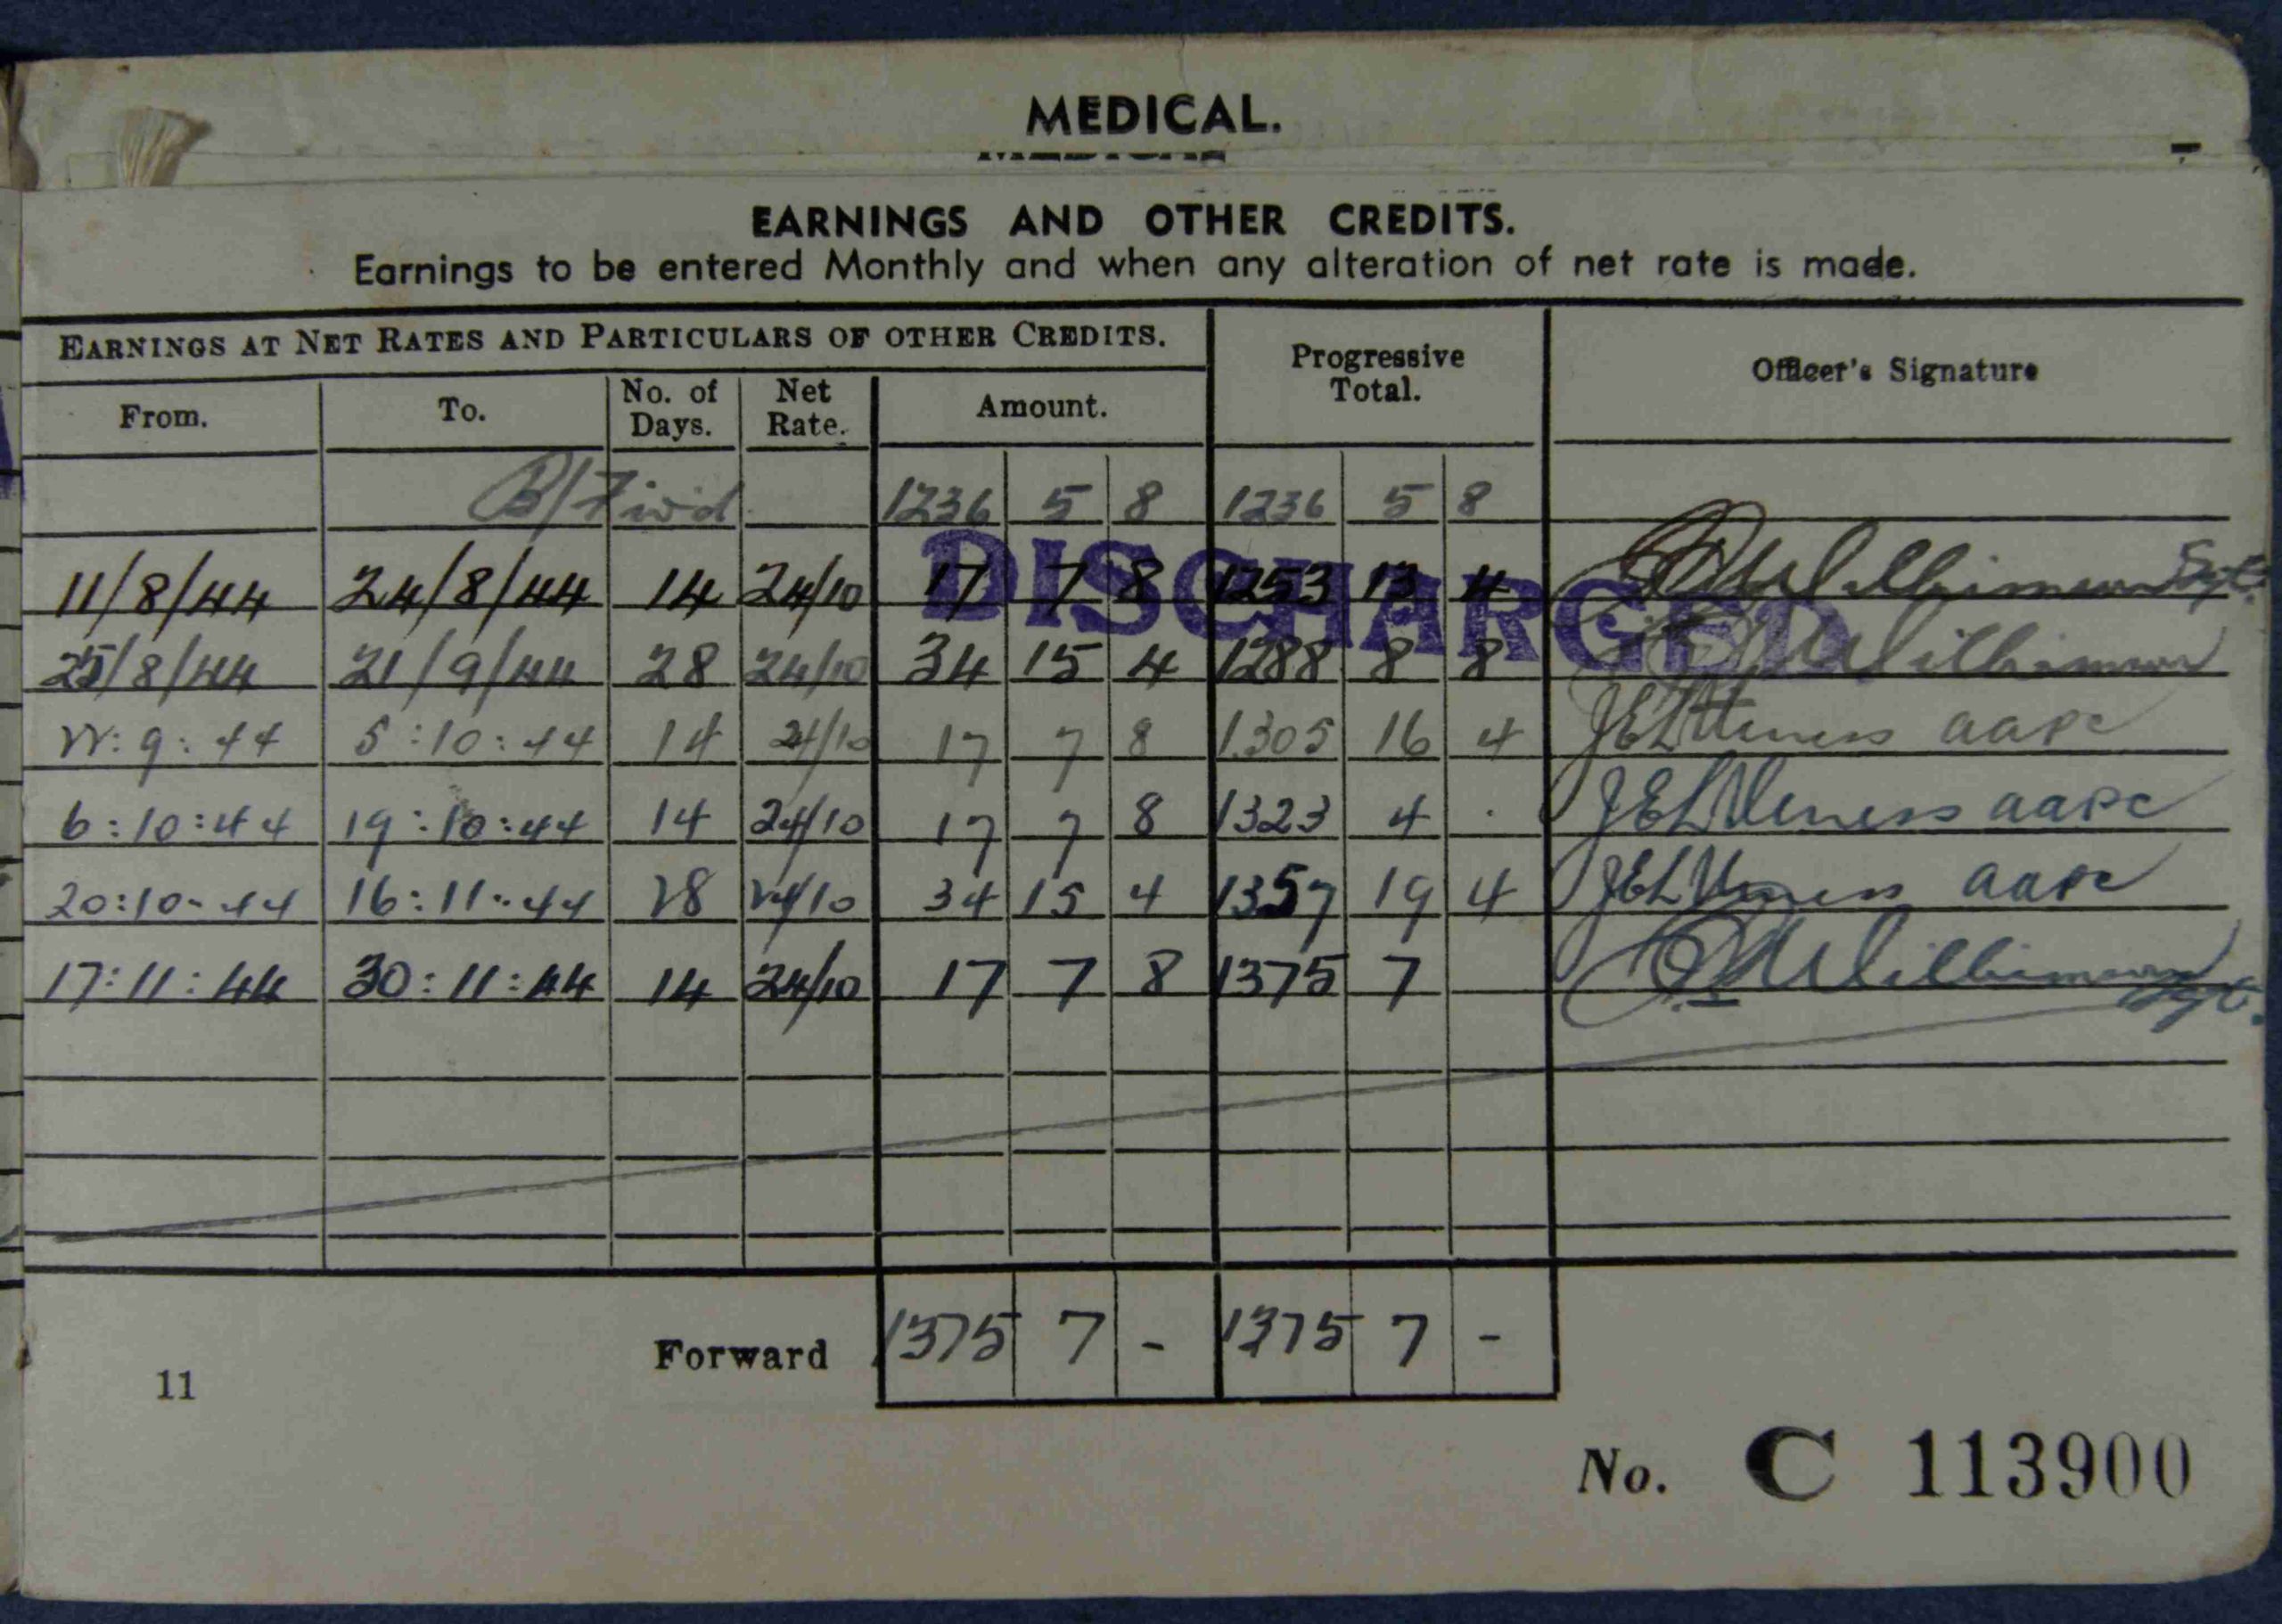 MEDICAL.
EARNINGS AND OTHER CREDITS.
Earnings to be entered Monthly and when any alteration of net rate is made.
EARNINGS AT NET RATES AND PARTICULARS OF OTHER CREDITS. Progressive Total. Officer's Signature
From. To. No. of Days. Net Rate. Amount.
1236 5 8 1236 5 8
DISCHARGED
11/8/44 24/8/44 14 24/10 17 7 8 1253 13 4 Williamson Sgt.
25/8/44 21/9/44 28 24/10 34 15 4 1288 8 8 Williamson
22:9:44 5:10:44 14 24/10 17 7 8 1305 16 4 aapc
6:10:44 19:10:44 14 24/10 17 7 8 1323 4 . aapc
20:10:44 16:11:44 28 24/10 34 15 4 1357 19 4 aapc
17:11:44 30:11:44 14 24/10 17 7 8 1375 7 Williamson Sgt.
Forward 1375 7 - 1375 7 -
11
No. C 113900